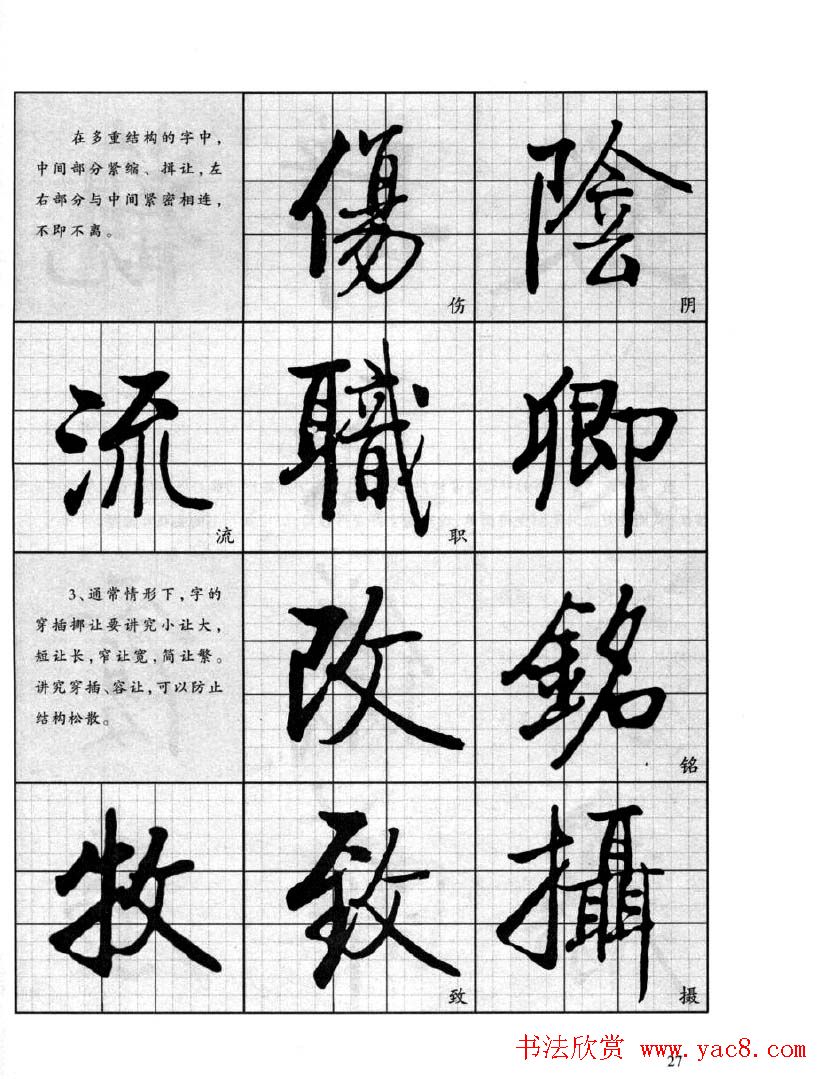 在多重结构的字中，
中间部分紧缩、揖让，左
右部分与中间紧密相连，
不即不离。
傷
伤
陰
阴
流
流
職
职
卿
3、通常情形下，字的
穿插挪让要讲究小让大，
短让长，窄让宽，简让繁。
讲究穿插、容让，可以防止
结构松散。
改
銘
铭
牧
致
致
攝
摄
书法欣赏 www.yac8.com
27